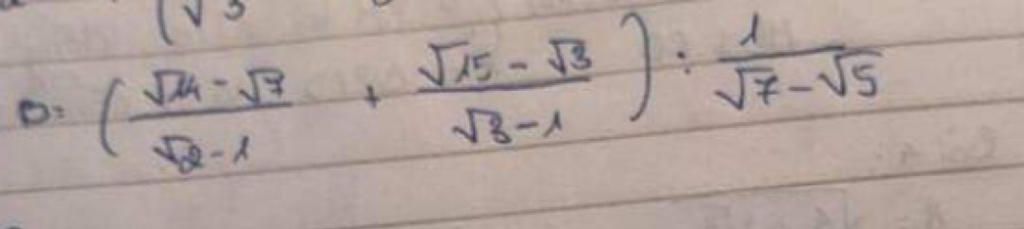 (√3
D = ( (√14 - √7)/(√2 - 1) + (√15 - √3)/(√3 - 1) ) : 1/(√7 - √5)